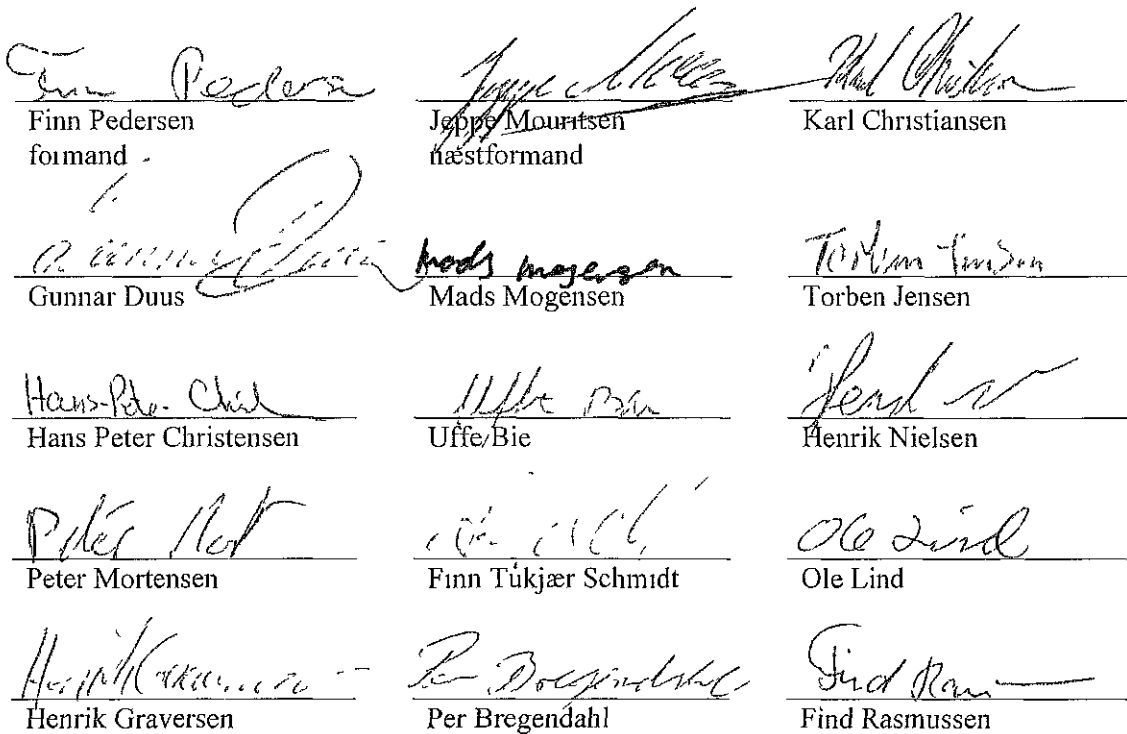 Finn Pedersen
Finn Pedersen
formand
Jeppe Mouritsen
næstformand
Karl Christiansen
Gunnar Duus
Gunnar Duus
Mads Mogensen
Mads Mogensen
Torben Jensen
Torben Jensen
Hans-Peter
Hans Peter Christensen
Uffe Bie
Uffe Bie
Henrik Nielsen
Peter
Peter Mortensen
Finn Tukjær Schmidt
Ole Lind
Ole Lind
Henrik Graversen
Per Bregendahl
Per Bregendahl
Find
Find Rasmussen